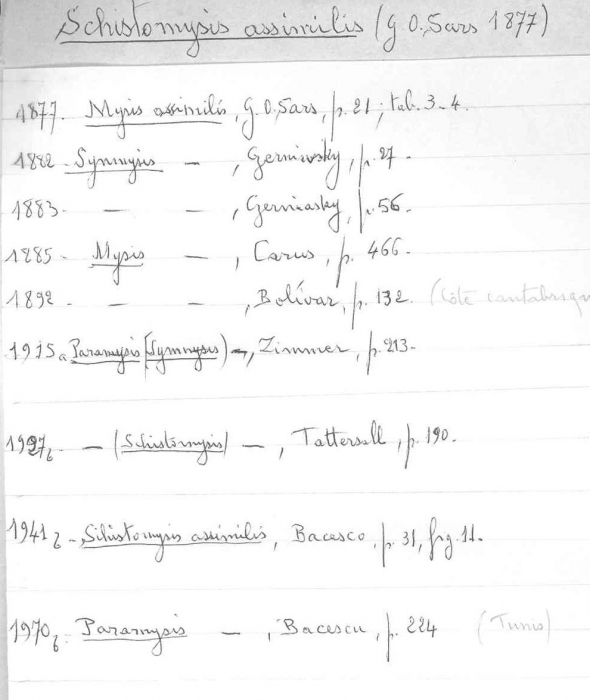 Schistomysis assimilis (G.O. Sars 1877)
1877. Mysis assimilis, G.O. Sars, p. 21 ; tab. 3-4.
1882 - Synmysis — , Czerniavsky, p. 27 -
1883 - — — , Czerniavsky, p. 56.
1885 - Mysis — , Carus, p. 466 -
1892 - — — , Bolívar, p. 132 (Côte cantabrique
1915a Paramysis (Synmysis) —, Zimmer, p. 213 -
1927b — (Schistomysis) — , Tattersall, p. 190.
1941b - Schistomysis assimilis, Bacesco, p. 31, fig. 11.
1970b - Paramysis — , Bacescu, p. 224 (Tunis)